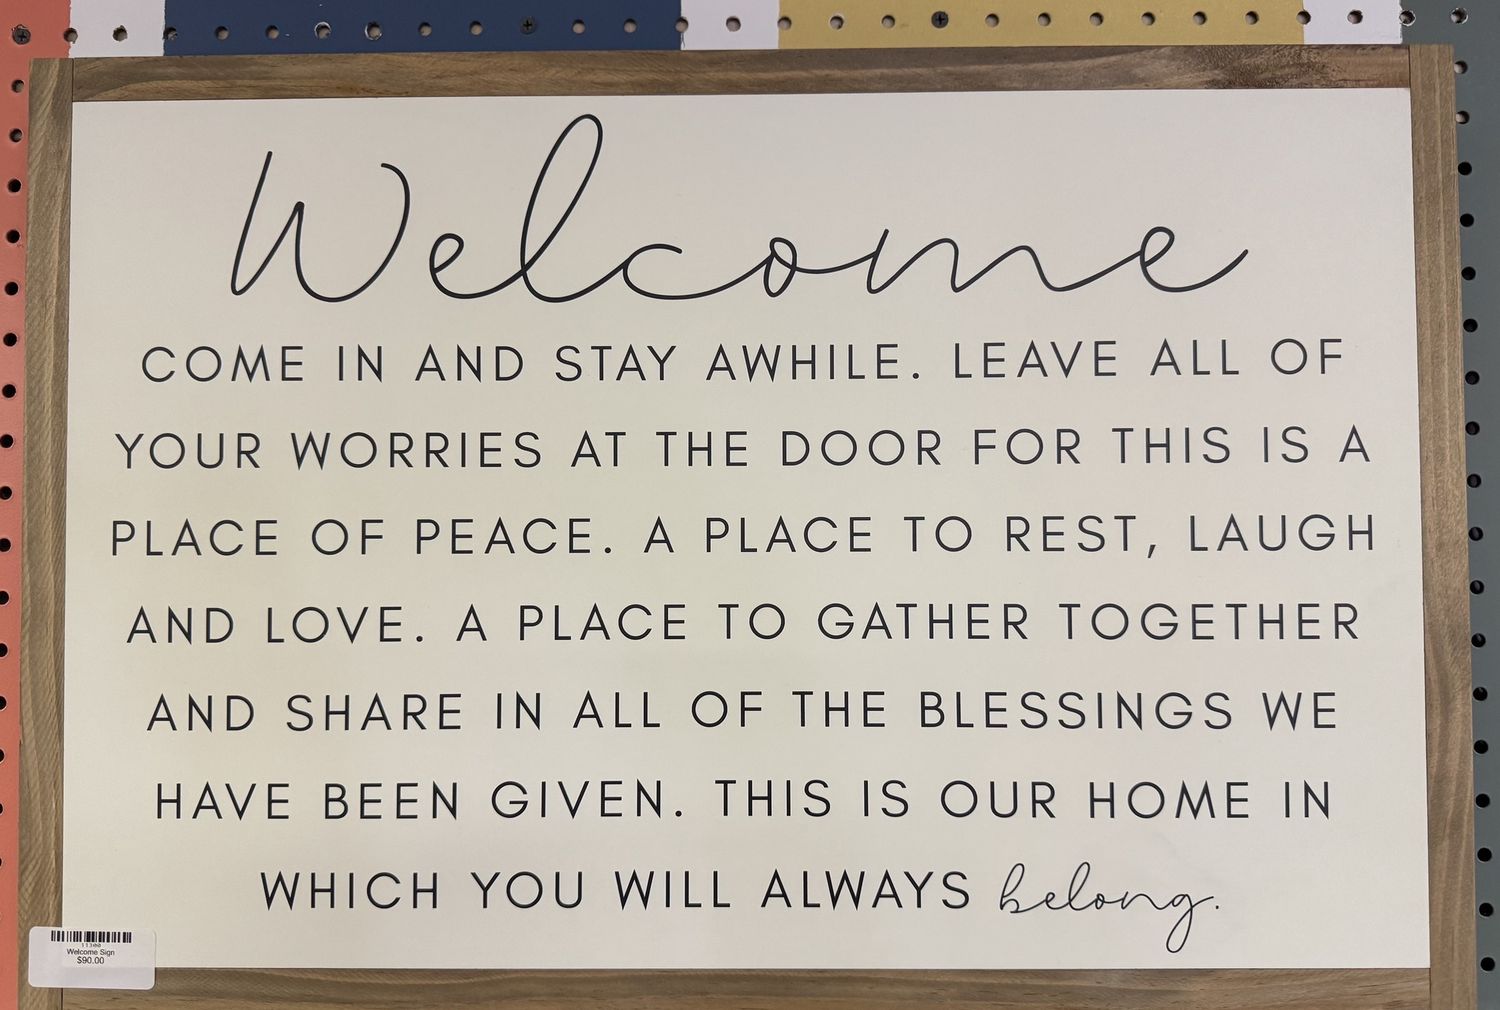 Welcome
COME IN AND STAY AWHILE. LEAVE ALL OF
YOUR WORRIES AT THE DOOR FOR THIS IS A
PLACE OF PEACE. A PLACE TO REST, LAUGH
AND LOVE. A PLACE TO GATHER TOGETHER
AND SHARE IN ALL OF THE BLESSINGS WE
HAVE BEEN GIVEN. THIS IS OUR HOME IN
WHICH YOU WILL ALWAYS belong.
11300
Welcome Sign
$90.00